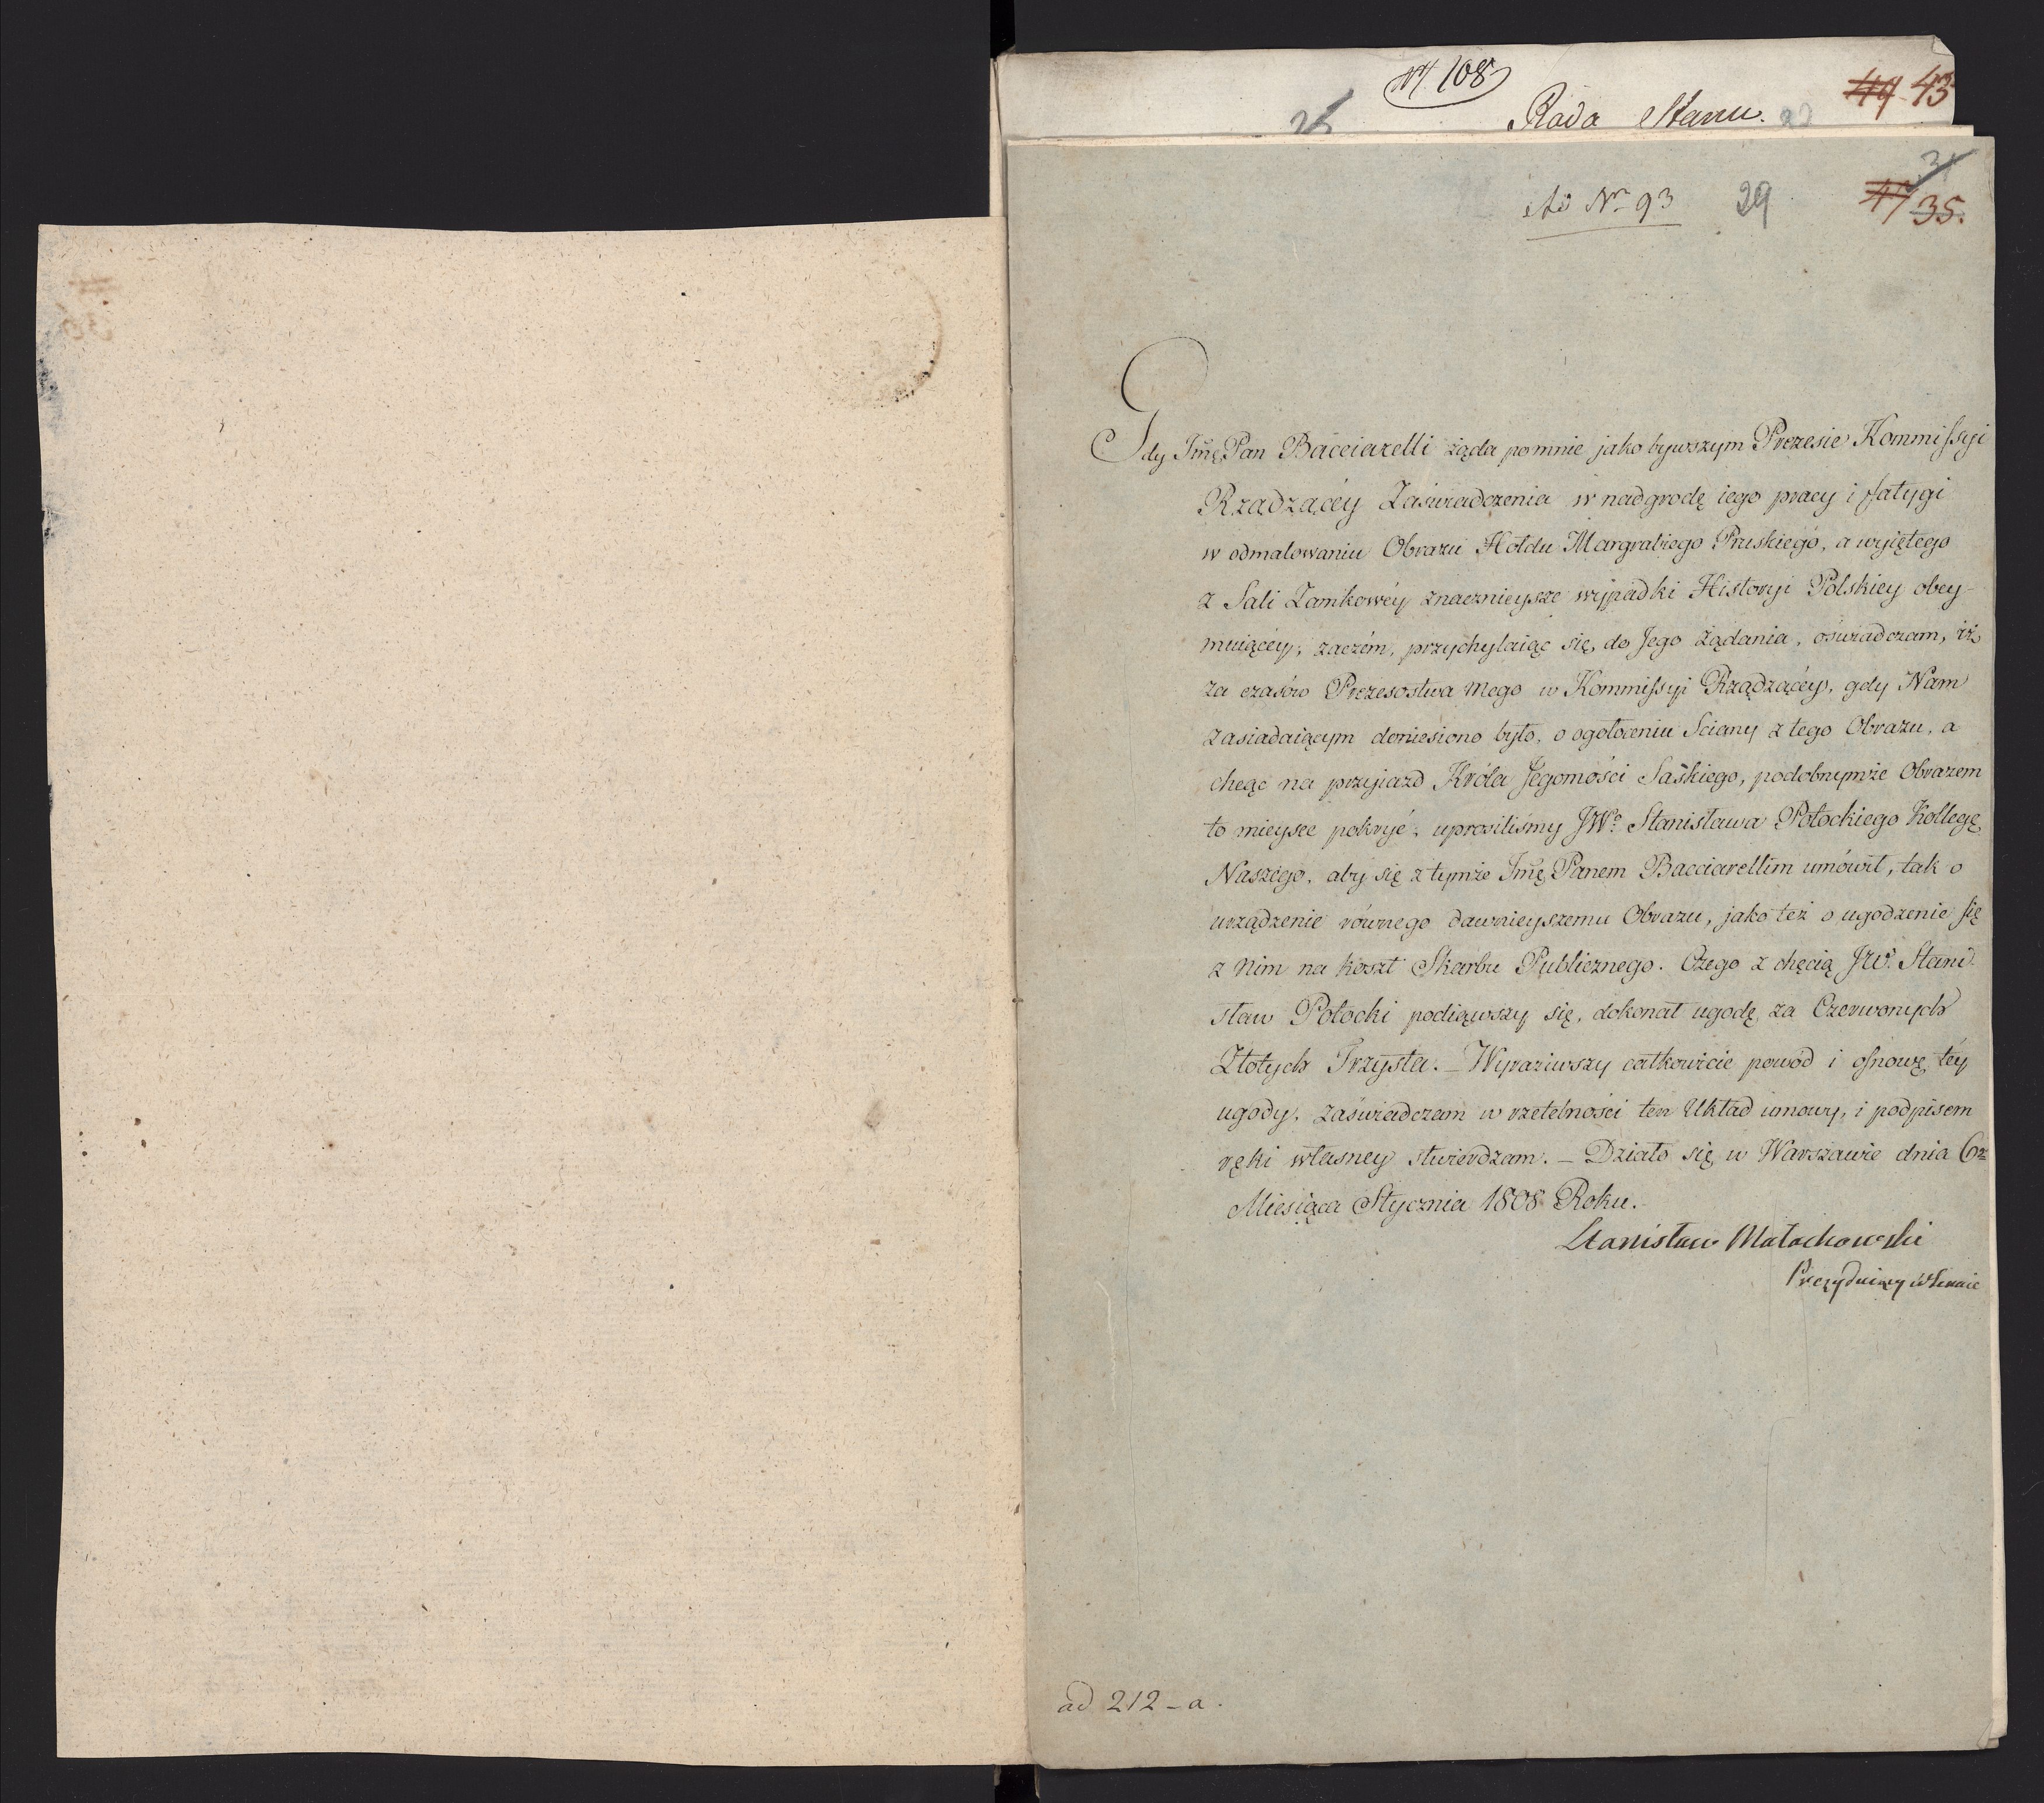 N 108
44 43
25
Rada Stanu. 22
31
ad Nr 93 29 47 35.
Gdy Jmć Pan Bacciarelli żąda pomnie jako bywszym Prezesie Kommissyi
Rządzącéy Zaświadczenia w nadgrodę iego pracy i fatygi
w odmalowaniu Obrazu Hołdu Margrabiego Pruskiego, a wyiętego
z Sali Zamkowéy znacznieysze wypadki Historyi Polskiey obey-
muiącéy; zaczém, przychylaiąc się, do Jego żądania, oświadczam, iż
za czasów Prezesostwa mego w Kommissyi Rządzącéy, gdy Nam
zasiadaiącym doniesiono było, o ogołoceniu Sciany z tego Obrazu, a
chcąc na przyjazd Króla Jegomości Saskiego, podobnymże Obrazem
to mieysce pokryć, uprosiliśmy JWo Stanisława Potockiego Kollegę
Naszego, aby się z tymże Jmć Panem Bacciarellim umówił, tak o
urządzenie równego dawnieyszemu Obrazu, jako też o ugodzenie się
z Nim na koszt Skarbu Publicznego. Czego z chęcią JW. Stani-
sław Potocki podiąwszy się, dokonał ugodę za Czerwonych
Złotych Trzysta. _ Wyraziwszy całkowicie powód i osnowę téy
ugody, zaświadczam w rzetelności ten Układ umowy, i podpisem
ręki własney stwierdzam. _ Działo się w Warszawie dnia 6n
Miesiąca Stycznia 1808 Roku.
Stanisław Małachowski
Prezyduiący w Senacie
ad 212 - a.